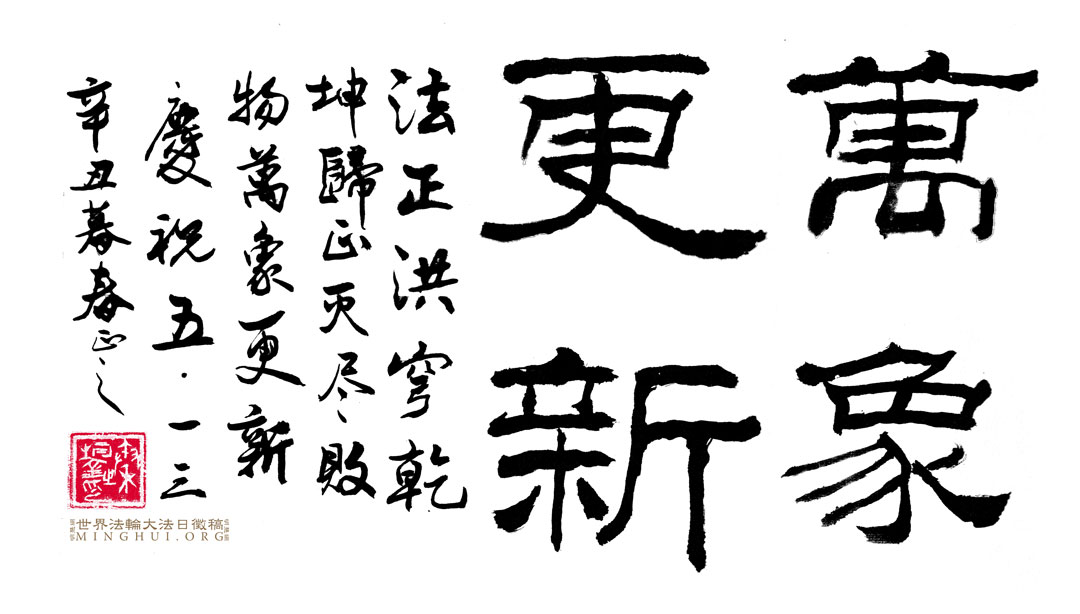 萬象
更新
法正洪穹乾
坤歸正灭尽敗
物萬象更新
慶祝五·一三
辛丑暮春正之
世界法輪大法日徵稿
MINGHUI.ORG